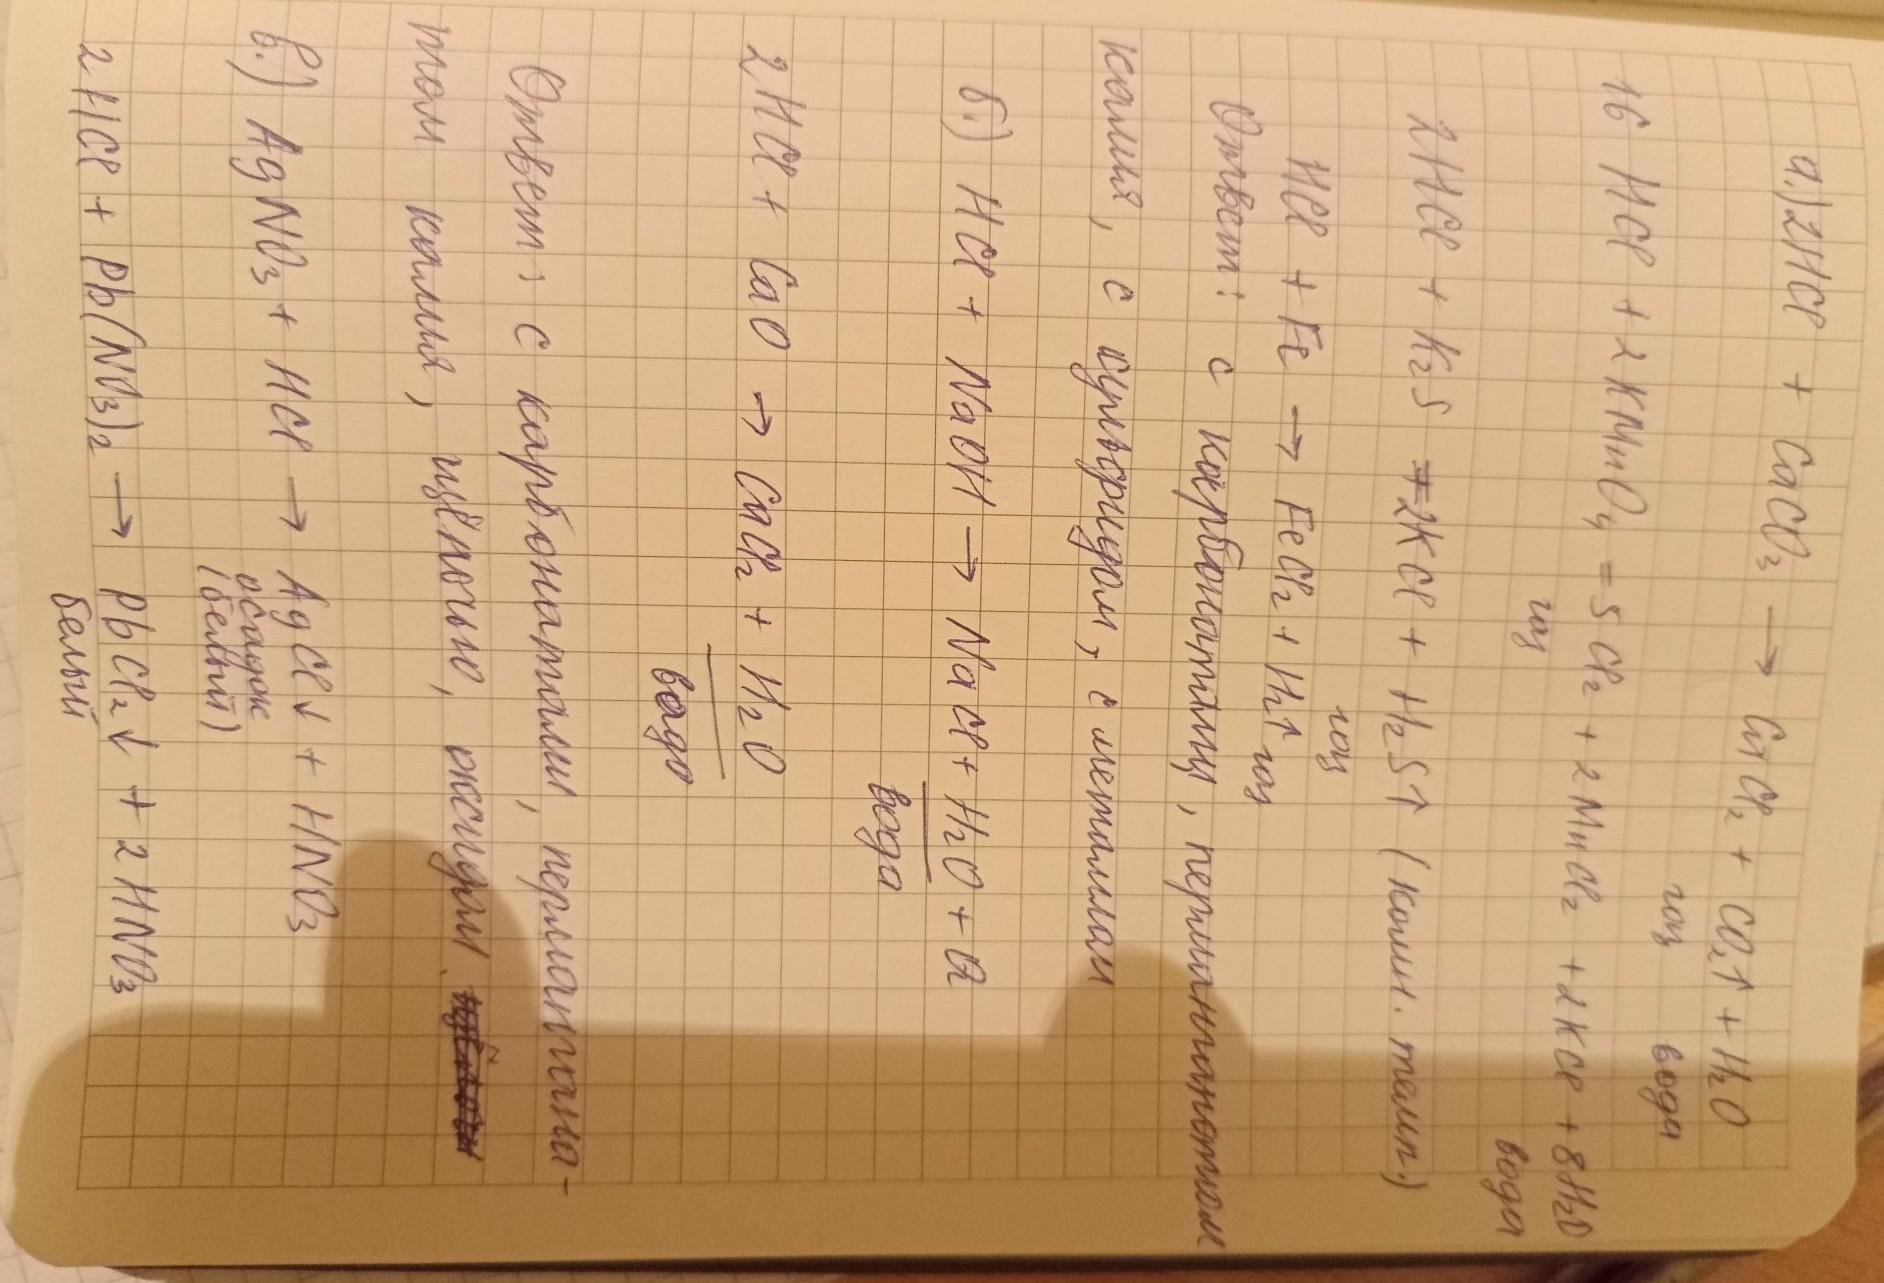 а.) 2HCl + CaCO₃ → CaCl₂ + CO₂↑ + H₂O
газ вода
16 HCl + 2 KMnO₄ = 5 Cl₂ + 2 MnCl₂ + 2 KCl + 8H₂O
газ вода
2HCl + K₂S = 2KCl + H₂S↑ (комн. темп.)
газ
HCl + Fe → FeCl₂ + H₂↑ газ
Ответ: с карбонатами, перманганатом
калия, с сульфидом, с металлам
б.) HCl + NaOH → NaCl + H₂O + Q
вода
2HCl + CaO → CaCl₂ + H₂O
вода
Ответ: с карбонатами, пермангана-
том калия, щёлочью, оксидом
в.) AgNO₃ + HCl → AgCl↓ + HNO₃
осадок
(белый)
2 HCl + Pb(NO₃)₂ → PbCl₂↓ + 2 HNO₃
белый